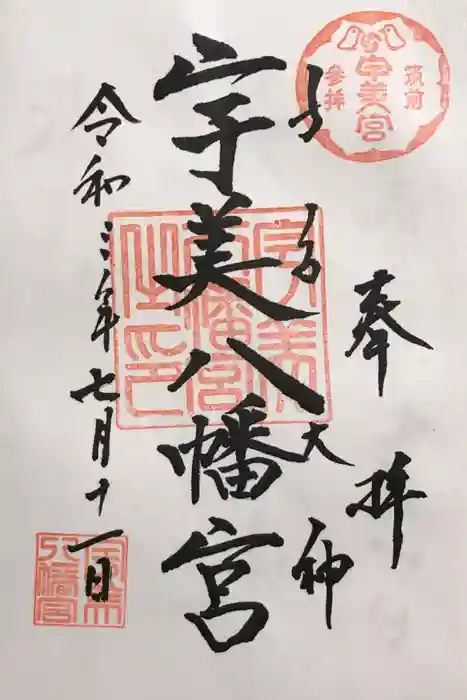 筑前
宇美宮
參拝
奉拝
大神
宇美八幡宮
宇美
八幡宮
之印
令和三年七月十一日
宇美
八幡宮